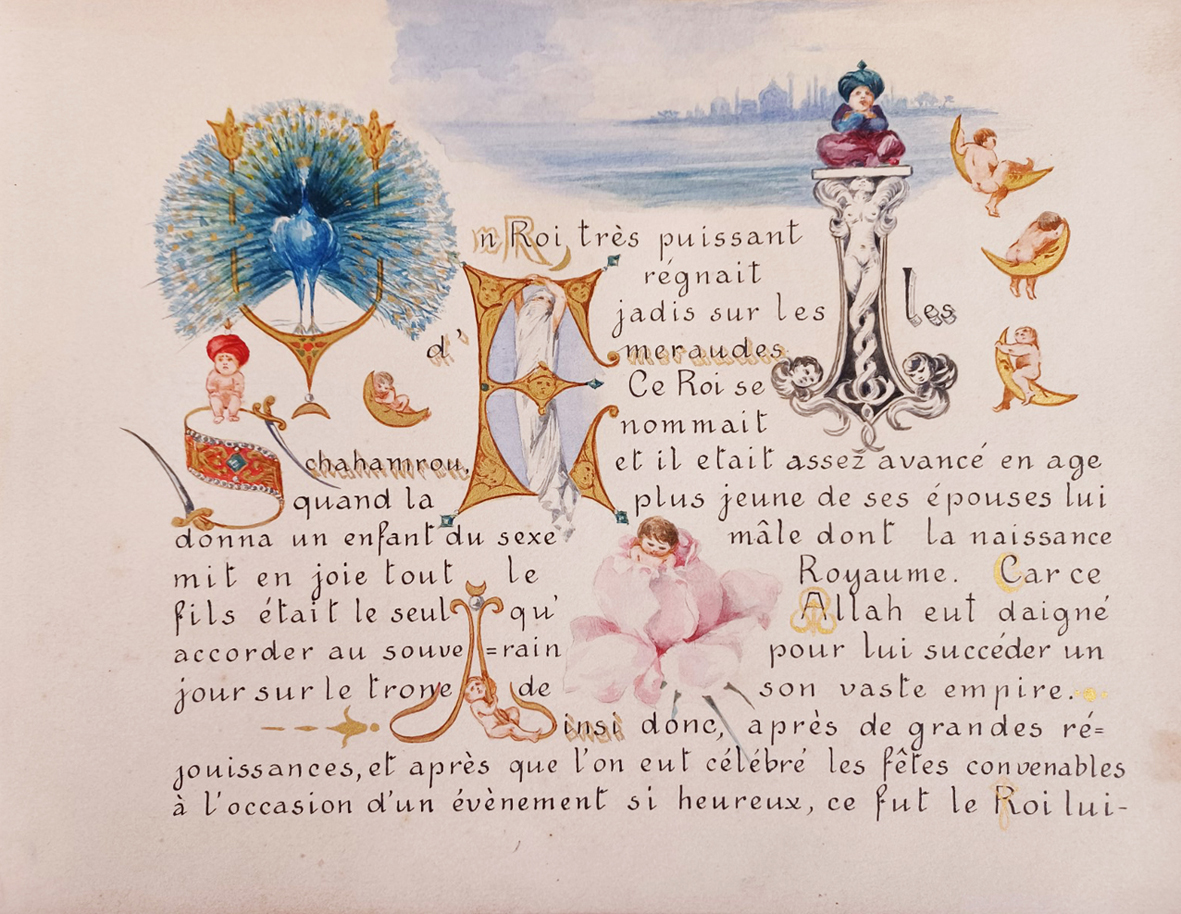 Un Roi très puissant
régnait
jadis sur les Iles
d'Emeraudes
Ce Roi se
nommait
Schahamrou, et il etait assez avancé en age
quand la plus jeune de ses épouses lui
donna un enfant du sexe mâle dont la naissance
mit en joie tout le Royaume. Car ce
fils était le seul qu'Allah eut daigné
accorder au souve=rain pour lui succéder un
jour sur le trone de son vaste empire.
Ainsi donc, après de grandes ré=
jouissances, et après que l'on eut célébré les fêtes convenables
à l'occasion d'un évènement si heureux, ce fut le Roi lui-